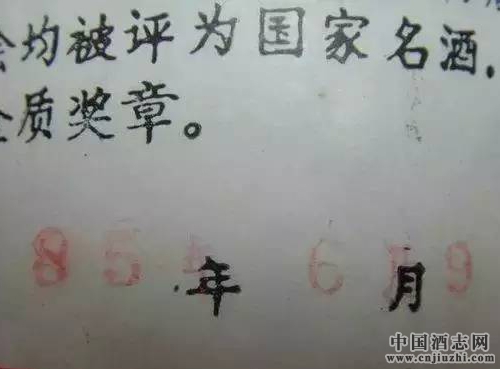 均被评为国家名酒,
质奖章。
85年 6月9
中国酒志网
www.cnjiuzhi.com